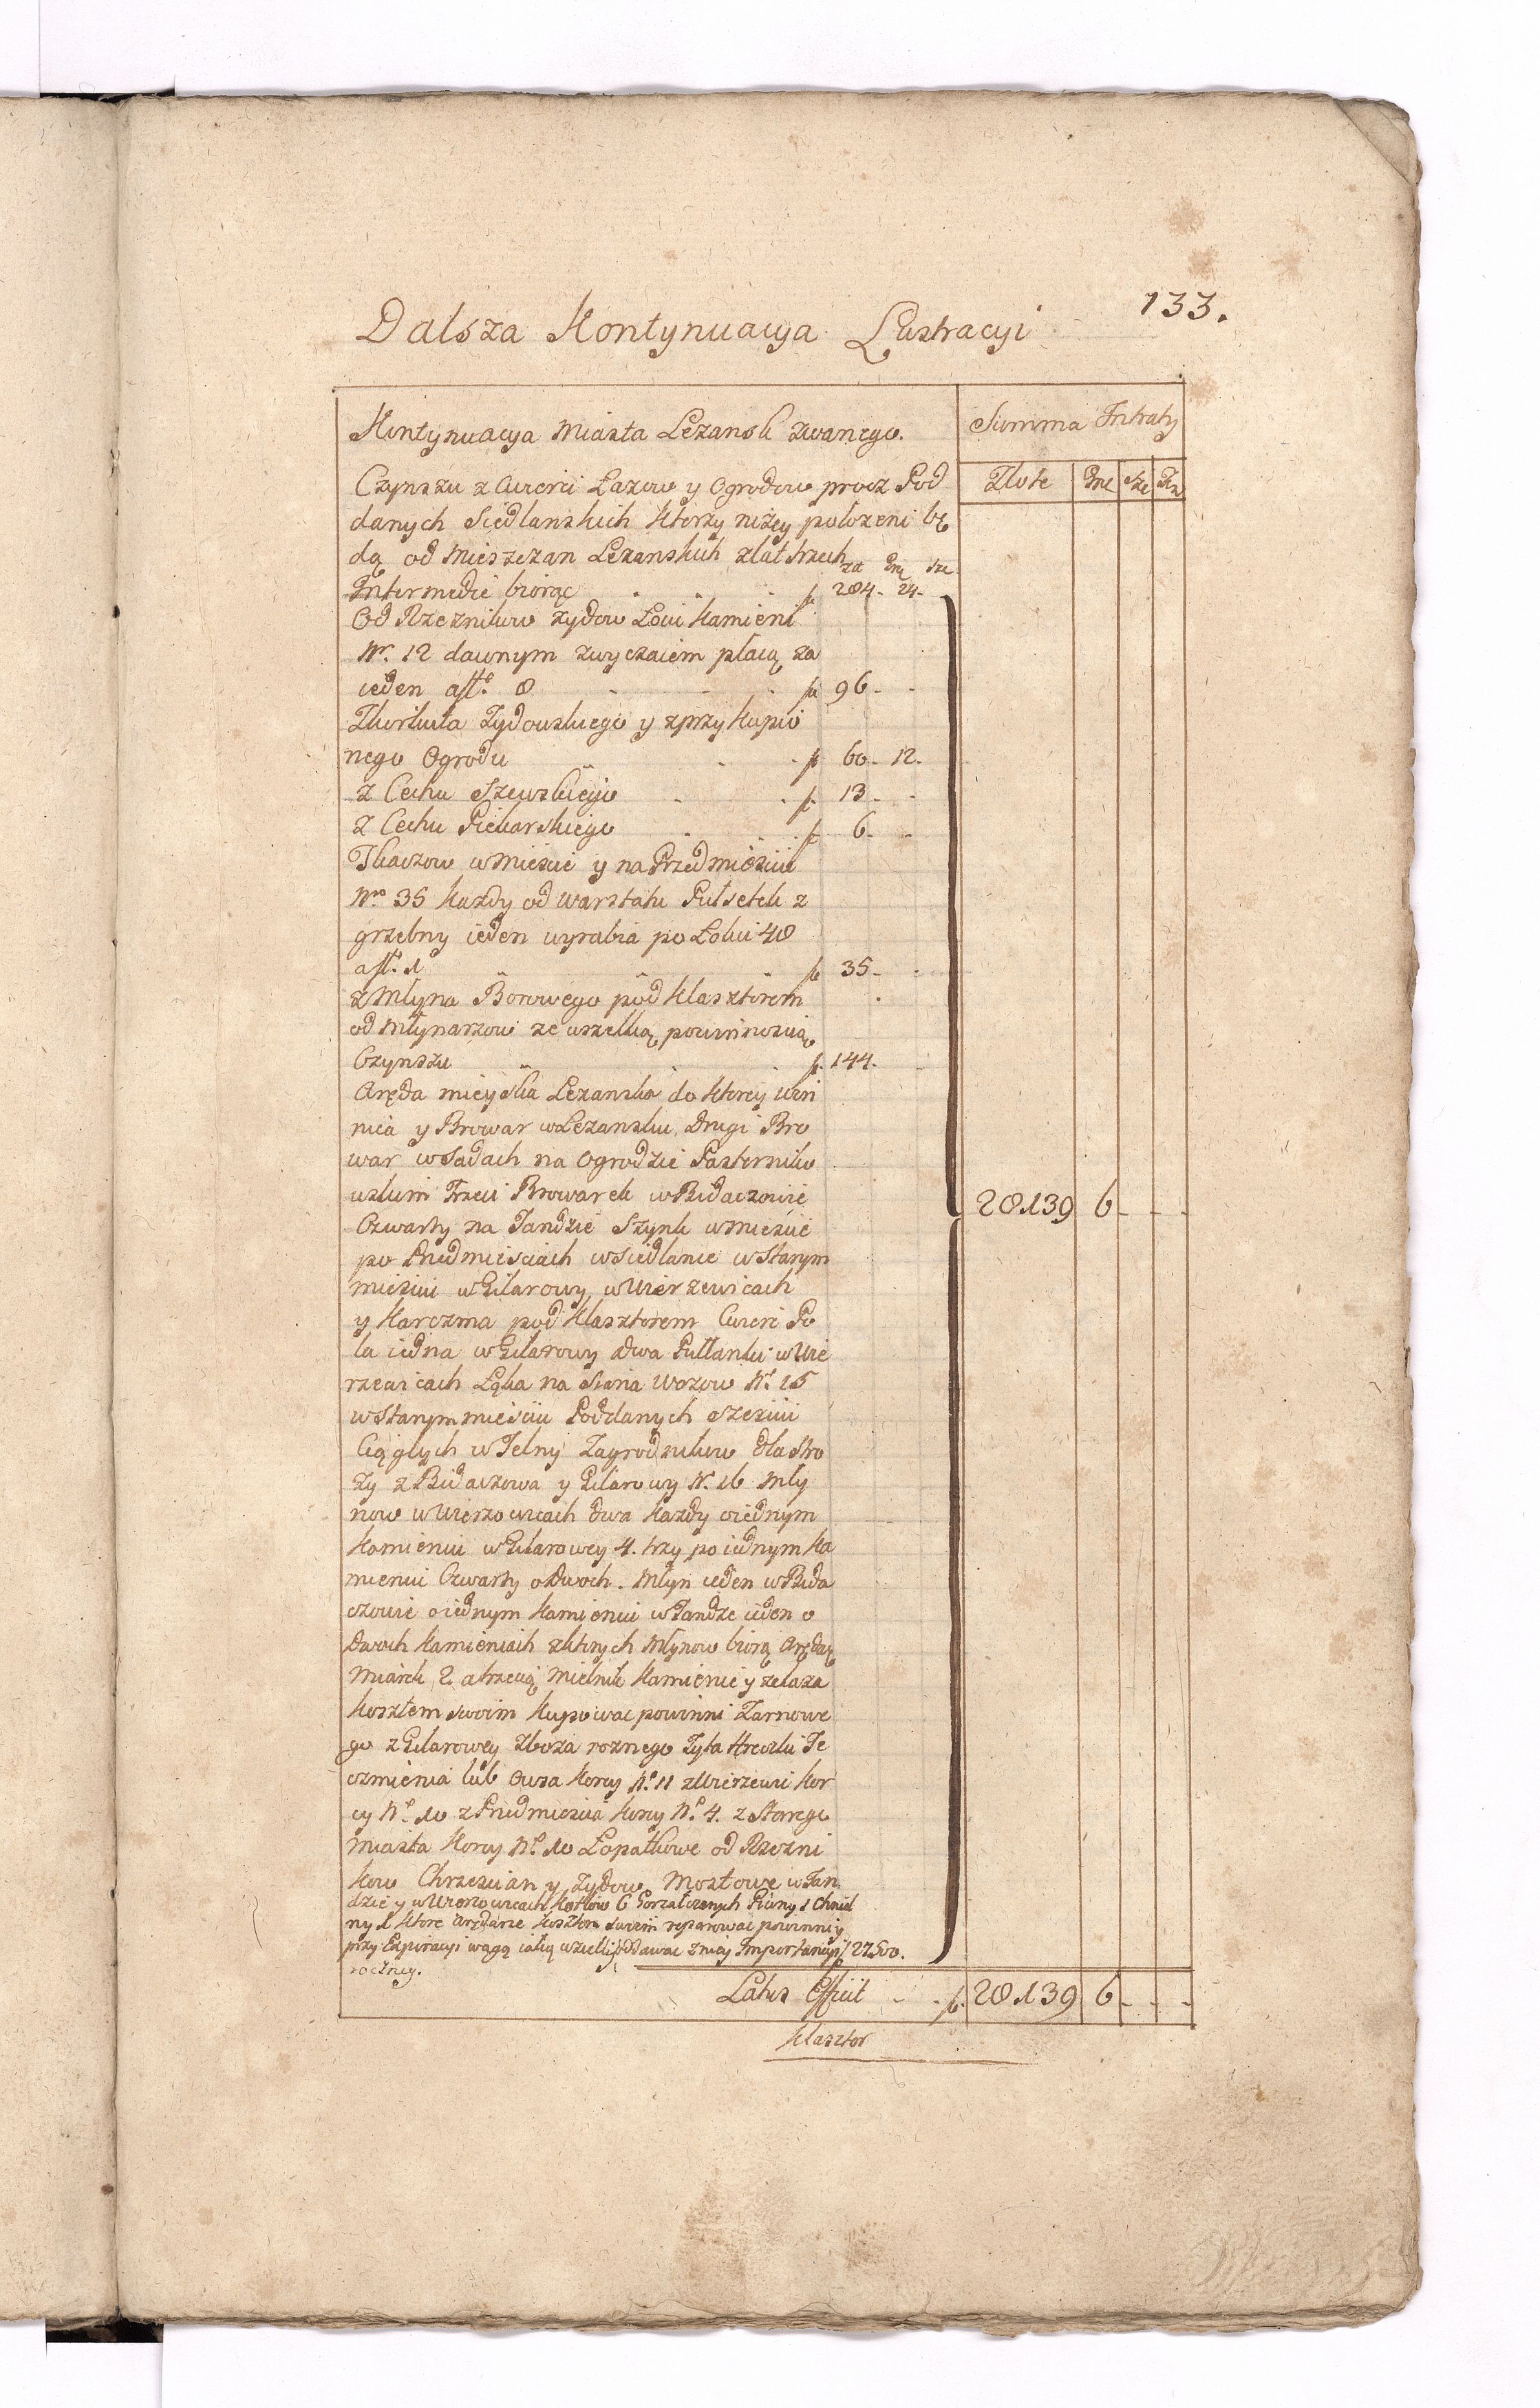 133.
Dalsza Kontynuacya Lustracyi
Kontynuacya Miasta Leżansk zwanego.
Summa Intraty
Złote Gr
Czynszu z Cwierci Lazow y Ogrodow procz Pod
danych Siedlanskich ktorzy niżey położeni bę
dą od Mieszczan Leżanskich zlat trzech
Intermedie biorąc - - - f 284. 24.
Od Rzeznikow Zydow Łoiu Kamieni
Nr. 12 dawnym zwyczaiem płacą za
ieden a f. 8 - - - f 96 - -
Zkorkuta Zydowskiego y z przykupio
nego Ogrodu - - f 60 - 12.
z Cechu Szewskiego - - f. 13 - -
z Cechu Piekarskiego - - f 6 - -
Tkaczow w Miescie y na Przedmiesciu
Nro 35 każdy od warstatu Pułsetek z
grzebny ieden wyrabia po Łokci 40
a f. 1 - - - f 35 -
z Młyna Borowego pod Klasztorem
od Młynarzow ze wszelką powinnoscią
Czynszu - - f. 144.
Aręda mieyska Leżanska do ktorey Win
nica y Browar w Leżansku, Drugi Bro
war w Sadach na Ogrodzie Pasterniko
wskim Trzeci Browarek w Bidaczowie
Czwarty na Jandzie Szynk w miescie
po Przedmiesciach w Siedlance w Starym
miesciu w Gilarowy, w Wierzewicach
y Karczma pod Klasztorem Cwierc Po
la iedna w Gilarowy dwa Pułlanki w Wie
rzewicach Łąka na Siana Wozow Nr. 15
w Starym miesciu Poddanych szesciu
Ciągłych w Jelny Zagrodnikow dla Stro
ży z Bidaczowa y Gilarowy Nr. 16 Mły
now w Wierzowicach dwa każdy o iednym
Kamieniu w Gilarowey 4. trzy po iednym Ka
mieniu Czwarty o Dwoch. Młyn ieden w Bida
czowie o iednym Kamieniu w Jandze ieden o
Dwoch Kamieniach z ktorych Młynow biorą Arędarz
Miarek 2. a trzecią Mielnik Kamienie y żelaza
kosztem swoim kupowac powinni Żarnowe
go z Gilarowey Zboża rożnego Żyta Hreczki Ję
czmienia lub Owsa korcy No 11 z Wierzewic kor
cy No 10 z Przedmiescia korcy No 4. z Starego
Miasta Korcy No 10 Łopatkowe od Rzezni
kow Chrzescian y Żydow Mostowe w Jan
dzie y w Wierzowicach Kotłow 6 Gorzałczanych Piwny 1 Chmiel
ny 1 ktore Arędarze kosztem swoim reparowac powinni y
przy Expiracyi wagą całą wszelki oddawac z niey Importancyi f 27500.
roczney.
28139 6 - - -
Latus Efficit - - f. 28139 6 - - -
Klasztor